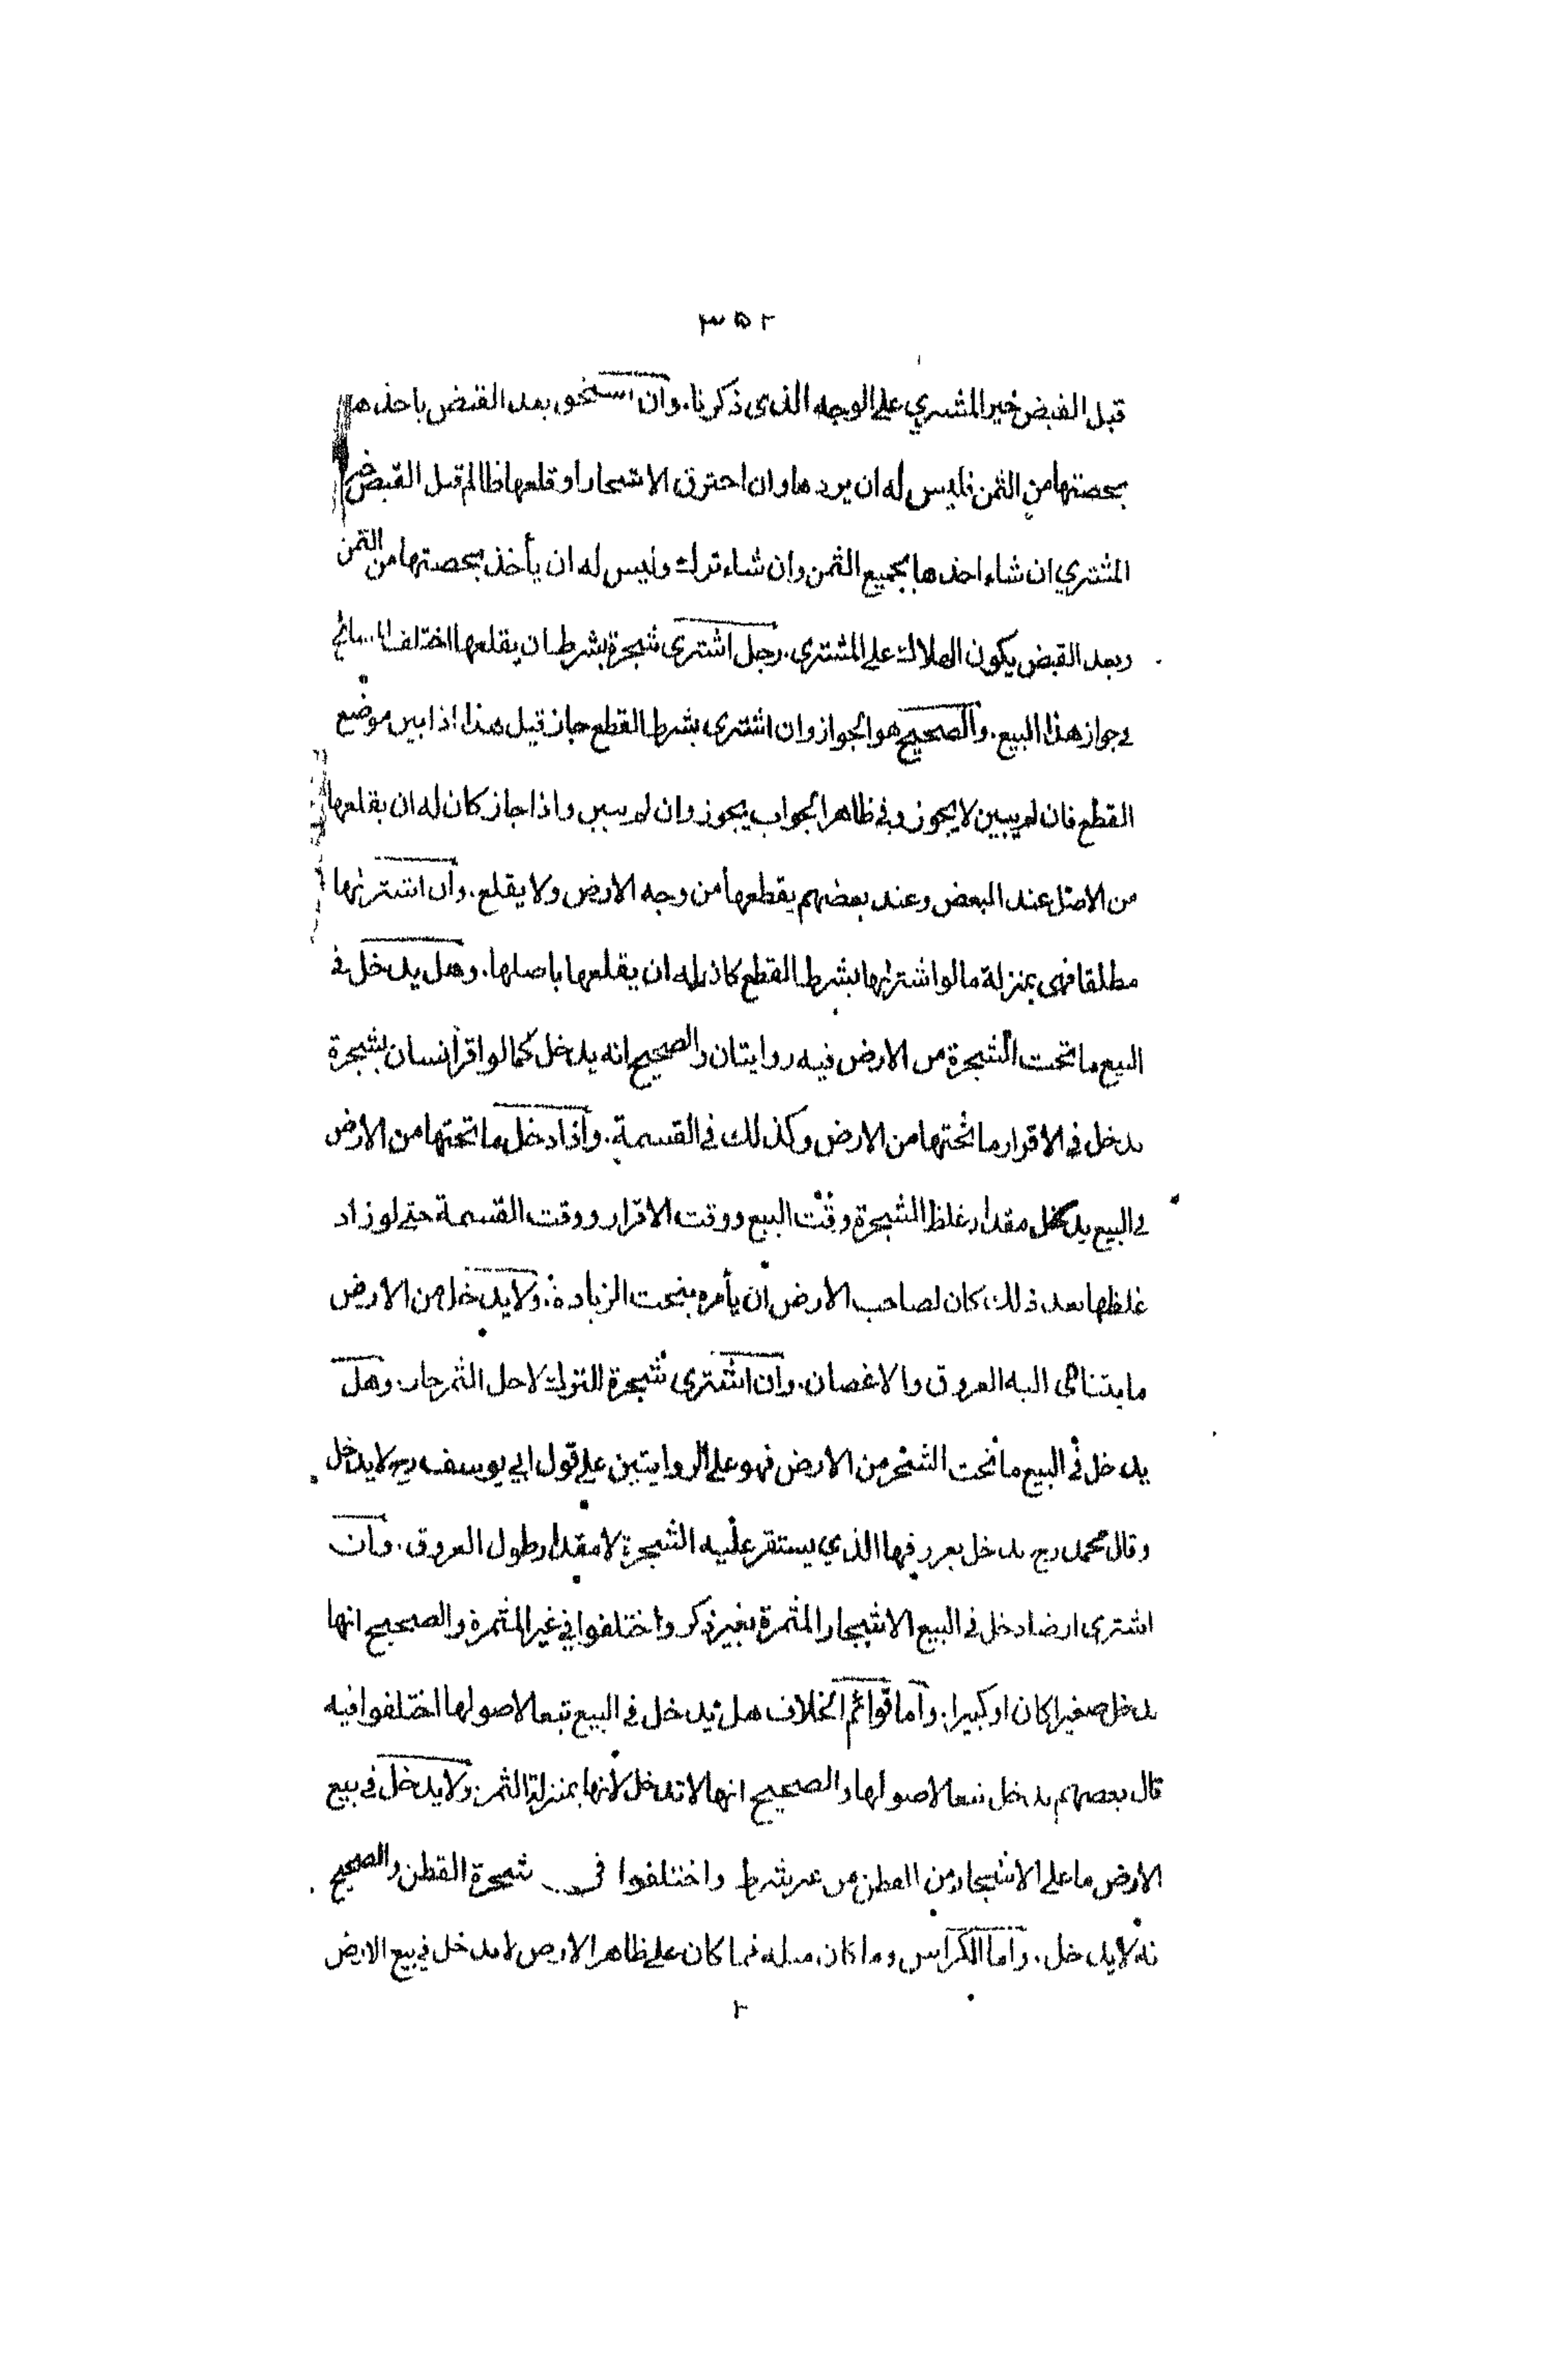 ٣٥٢
قبل القبض خير المشتري على الوجه الذى ذكرنا. وان استحق بعد القبض ياخذها
بحصتها من الثمن فليس له ان يردها وان احترق الاشجار او قلعها ظالم قبل القبض خير
المشتري ان شاء اخذها بجميع الثمن وان شاء ترك وليس له ان يأخذ بحصتها من الثمن
وبعد القبض يكون الهلاك على المشترى. رجل اشترى شجرة بشرط ان يقلعها اختلف المشائخ
فى جواز هذا البيع. والصحيح هو الجواز وان اشترى بشرط القطع جاز قيل هذا اذا بين موضع
القطع فان لم يبين لا يجوز وفى ظاهر الجواب يجوز وان لم يبين واذا جاز كان له ان يقلعها
من الاصل عند البعض وعند بعضهم يقطعها من وجه الارض ولا يقلع. وان اشتريها
مطلقا فهى بمنزلة ما لو اشتريها بشرط القطع كان له ان يقلعها باصلها. وهل يدخل فى
البيع ما تحت الشجرة من الارض فيه روايتان والصحيح انه يدخل كما لو اقر انسان بشجرة
يدخل فى الاقرار ما تحتها من الارض وكذلك فى القسمة. واذا دخل ما تحتها من الارض
فى البيع يدخل مقدار غلظ الشجرة وقت البيع ووقت الاقرار ووقت القسمة حتى لو زاد
غلظها بعد ذلك كان لصاحب الارض ان يأمره بنحت الزيادة. ولا يدخل من الارض
ما يتناهى اليه العروق والاغصان. وان اشترى شجرة للترك لاجل الثمر جاز. وهل
يدخل فى البيع ما تحت الشجر من الارض فهو على الروايتين على قول ابي يوسف رح لا يدخل
وقال محمد رح يدخل بعروقها الذي يستقر عليه الشجرة لا مقدار طول العروق. وان
اشترى ارضا دخل فى البيع الاشجار المثمرة بغير ذكر واختلفوا في غير المثمرة والصحيح انها
يدخل صغيرا كان او كبيرا. واما قوائم الخلاف هل يدخل فى البيع تبعا لاصولها اختلفوا فيه
قال بعضهم يدخل تبعا لاصولها والصحيح انها لا تدخل لانها بمنزلة الثمر. ولا يدخل فى بيع
الارض ما على الاشجار من القطن من غير شرط واختلفوا فى شجرة القطن والصحيح
نه لا يدخل. واما الكراس وما كان مثله فما كان على ظاهر الارض لا يدخل في بيع الارض
٢